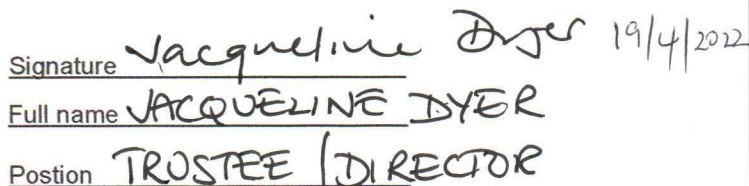 Signature Jacqueline Dyer 19/4/2022
Full name JACQUELINE DYER
Postion TRUSTEE / DIRECTOR